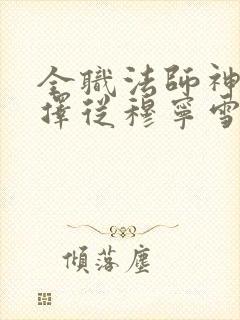 全職法師神
擇從穆寧雪
傾落塵